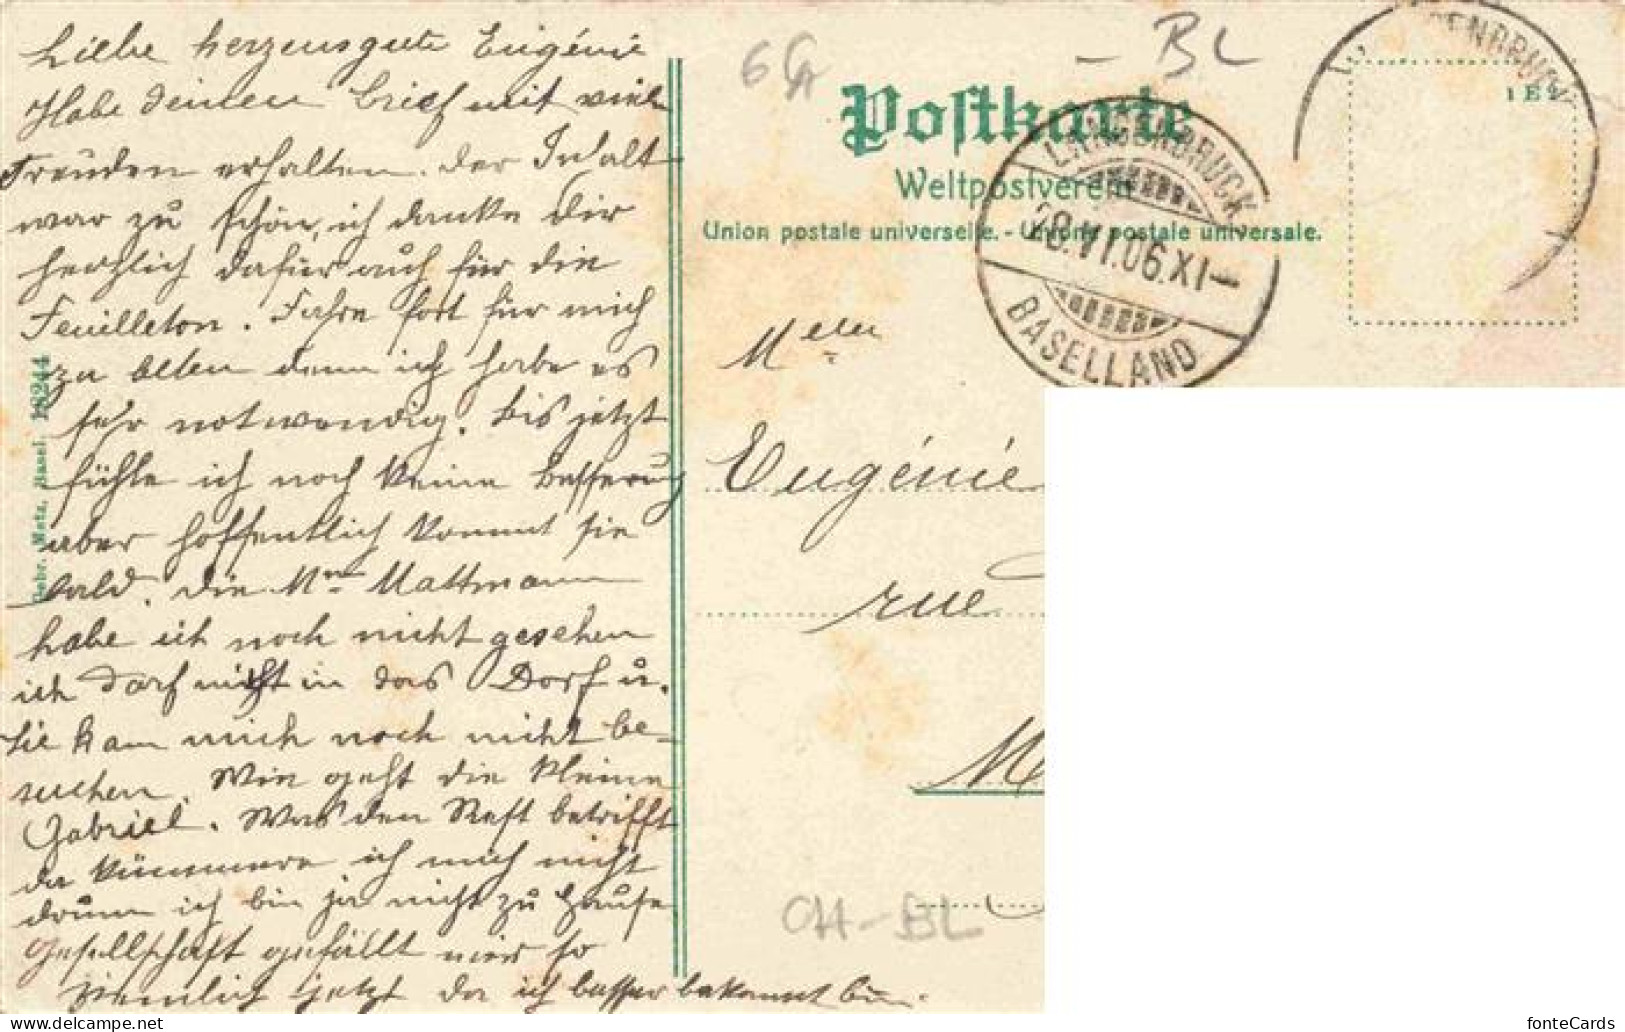 Liebe herzensgute Eugénie
Habe deinen Brief mit viel
Freuden erhalten. Der Inhalt
war zu schön, ich danke dir
herzlich dafür auch für die
Feuilleton. Fahre fort für mich
zu beten denn ich habe es
sehr notwendig. Bis jetzt
fühle ich noch keine Besserung
aber hoffentlich kommt sie
bald. Die Mme Mattmann
habe ich noch nicht gesehen
ich darf nicht in das Dorf u.
sie kam mich noch nicht be-
suchen. Wie geht die kleine
Gabriel. Was den Rest betrifft
da kümmere ich mich nicht
drum ich bin ja nicht zu Hause
Gesellschaft gefällt mir so
ziemlich jetzt da ich besser bekannt bin.
Gebr. Metz, Basel. 18244
6
- BL
Postkarte
Weltpostverein
Union postale universelle. - Unione postale universale.
LANGENBRUCK
28.VI.06.XI-
BASELLAND
ENBRUCK
Melle
Eugénie
rue
M
CH-BL
fonteCards